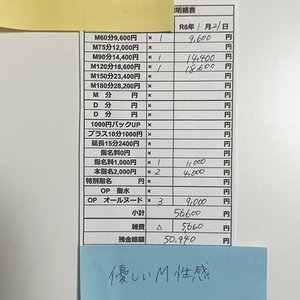 明細表
R6年1月21日
M60分9,600円 × 1 9,600 円
M75分12,000円 × 円
M90分14,400円 × 1 14,400 円
M120分18,600円 × 1 18,600 円
M150分23,400円 × 円
M180分28,200円 × 円
M 分 円 × 円
D 分 円 × 円
D 分 円 × 円
1000円バックUP × 円
プラス10分1000円 × 円
延長15分2400円 × 円
指名料0円 × 円
指名料1,000円 × 1 1,000 円
本指名2,000円 × 2 4,000 円
特別指名 円 × 円
OP 聖水 × 円
OP オールヌード × 3 9,000 円
小計 56,600 円
雑費 △ 5660 円
残金総額 50,940 円
優しいM性感